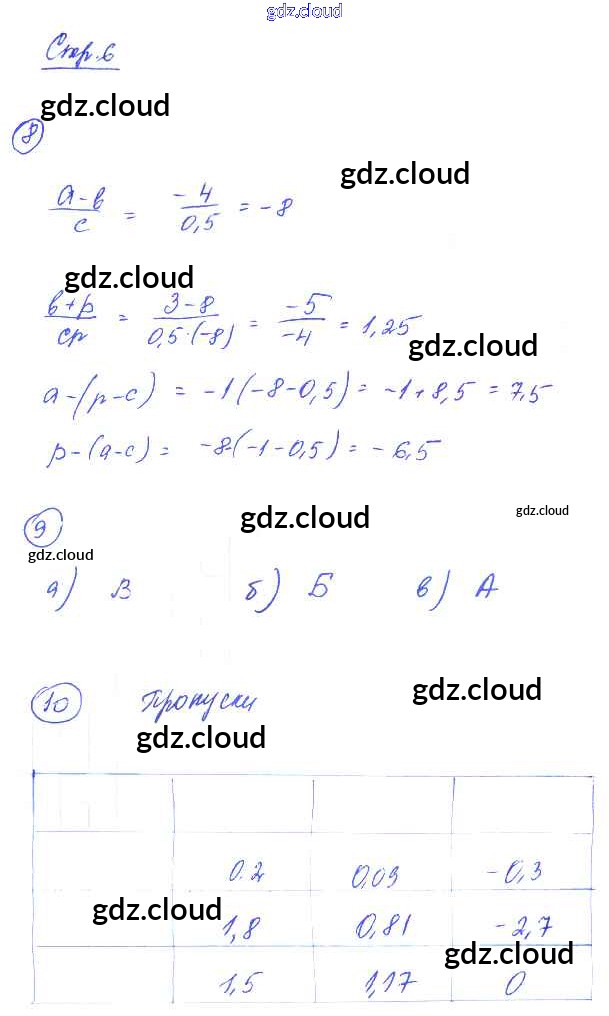 gdz.cloud
Стр. 6
gdz.cloud
8
gdz.cloud
(a-b)/c = -4/0,5 = -8
gdz.cloud
(b+p)/cp = (3-8)/(0,5·(-8)) = -5/-4 = 1,25
gdz.cloud
a-(p-c) = -1(-8-0,5) = -1+8,5 = 7,5
p-(a-c) = -8-(-1-0,5) = -6,5
gdz.cloud
gdz.cloud
9
gdz.cloud
а) В б) Б в) А
gdz.cloud
10 Пропуски
gdz.cloud
0.2 0,09 -0,3
gdz.cloud
1,8 0,81 -2,7
gdz.cloud
1,5 1,17 0